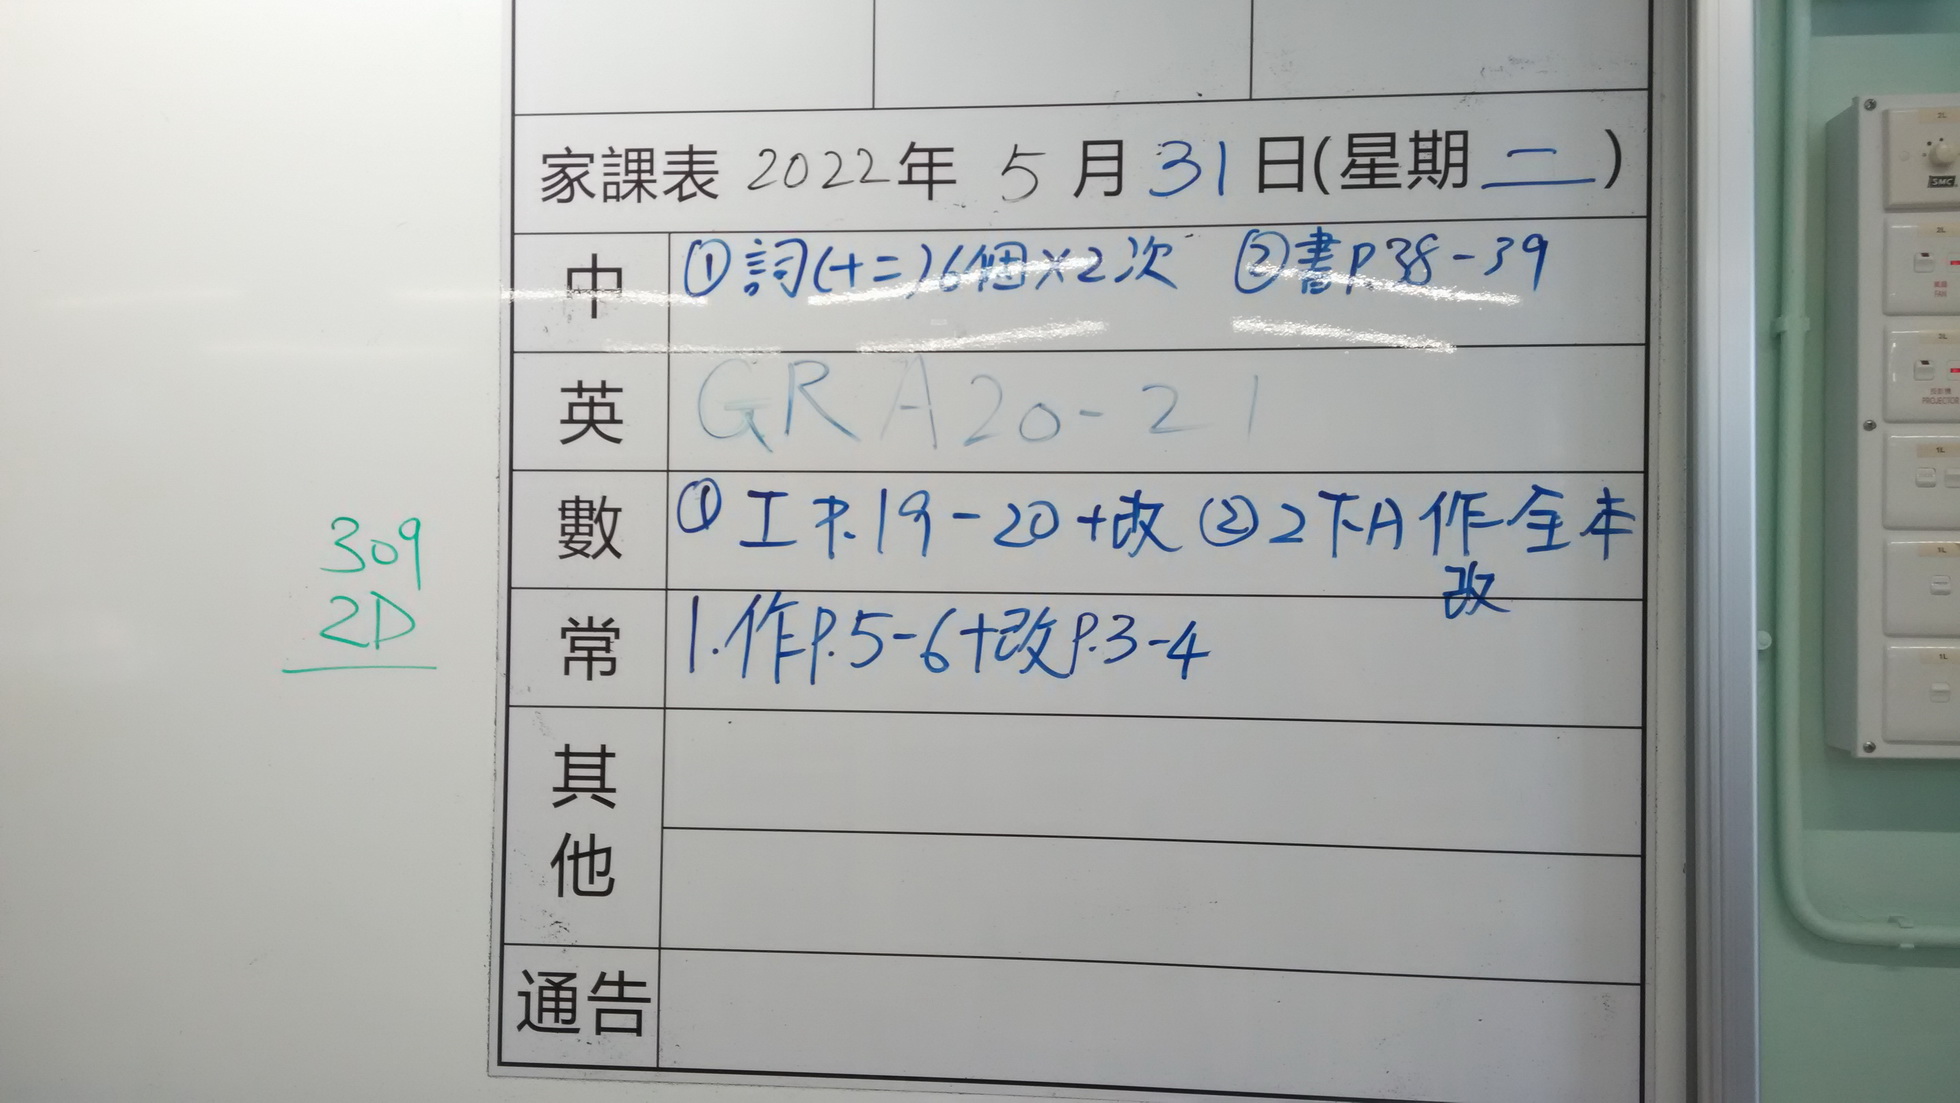 家課表 2022年 5月31日(星期二)
中 ①詞(十二)6個×2次 ②書P.38-39
英 GRA20-21
數 ①工P.19-20+改 ②2下A作全本
改
常 1.作P.5-6+改P.3-4
其他
通告
309
2D
SMC
FAN
PROJECTOR